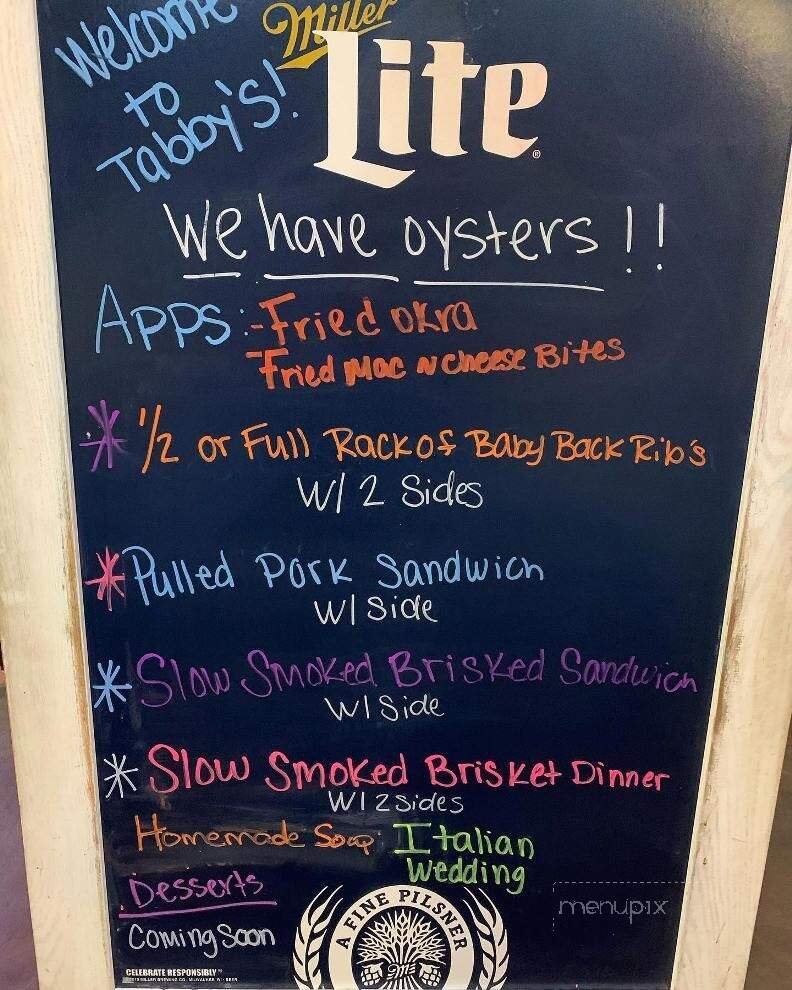 Welcome
to
Tabby's!
Miller
Lite
We have oysters!!
Apps: -Fried okra
Fried Mac N Cheese Bites
* 1/2 or Full Rack of Baby Back Rib's
W/ 2 Sides
* Pulled Pork Sandwich
W/ Side
* Slow Smoked Brisked Sandwich
W/ Side
* Slow Smoked Brisket Dinner
W/ 2 Sides
Homemade Soup: Italian
Wedding
Desserts
Coming Soon
A FINE PILSNER
menupix
CELEBRATE RESPONSIBLY™
MILLER BREWING CO., MILWAUKEE, WI · BEER